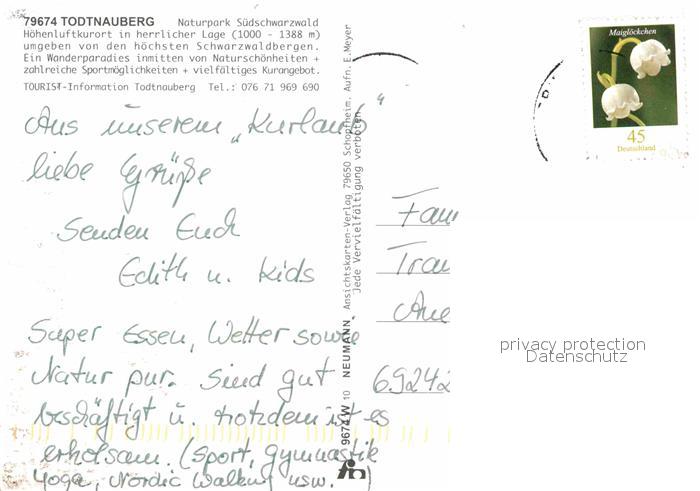 79674 TODTNAUBERG Naturpark Südschwarzwald
Höhenluftkurort in herrlicher Lage (1000 - 1388 m)
umgeben von den höchsten Schwarzwaldbergen.
Ein Wanderparadies inmitten von Naturschönheiten +
zahlreiche Sportmöglichkeiten + vielfältiges Kurangebot.
TOURIST-Information Todtnauberg Tel.: 076 71 969 690
Aus unserem „Kurlaub“
liebe Grüße
Senden Euch
Edith u. Kids
Super Essen, Wetter sowie
Natur pur. Sind gut
beschäftigt u. trotzdem ist es
erholsam. (Sport, Gymnastik
Yoga, Nordic Walking usw.)
9674 W 10 NEUMANN, Ansichtskarten-Verlag 79650 Schopfheim. Aufn. E.Meyer
Jede Vervielfältigung verboten.
Maiglöckchen
45
Deutschland
Fam
Trau
Aue
69242
privacy protection
Datenschutz